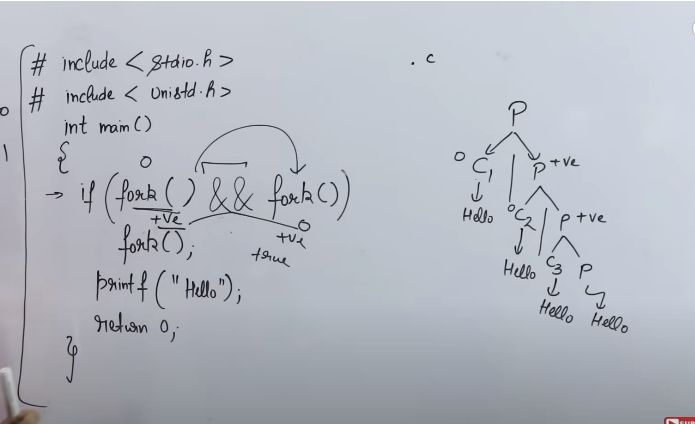 # include < stdio.h >
# include < unistd.h >
int main()
{
0
→ if (fork() && fork())
+ve
0
+ve
true
fork();
printf("Hello");
return 0;
}
0
1
. c
P
0 C1 P +ve
Hello
0 C2 P +ve
Hello
C3 P
Hello Hello